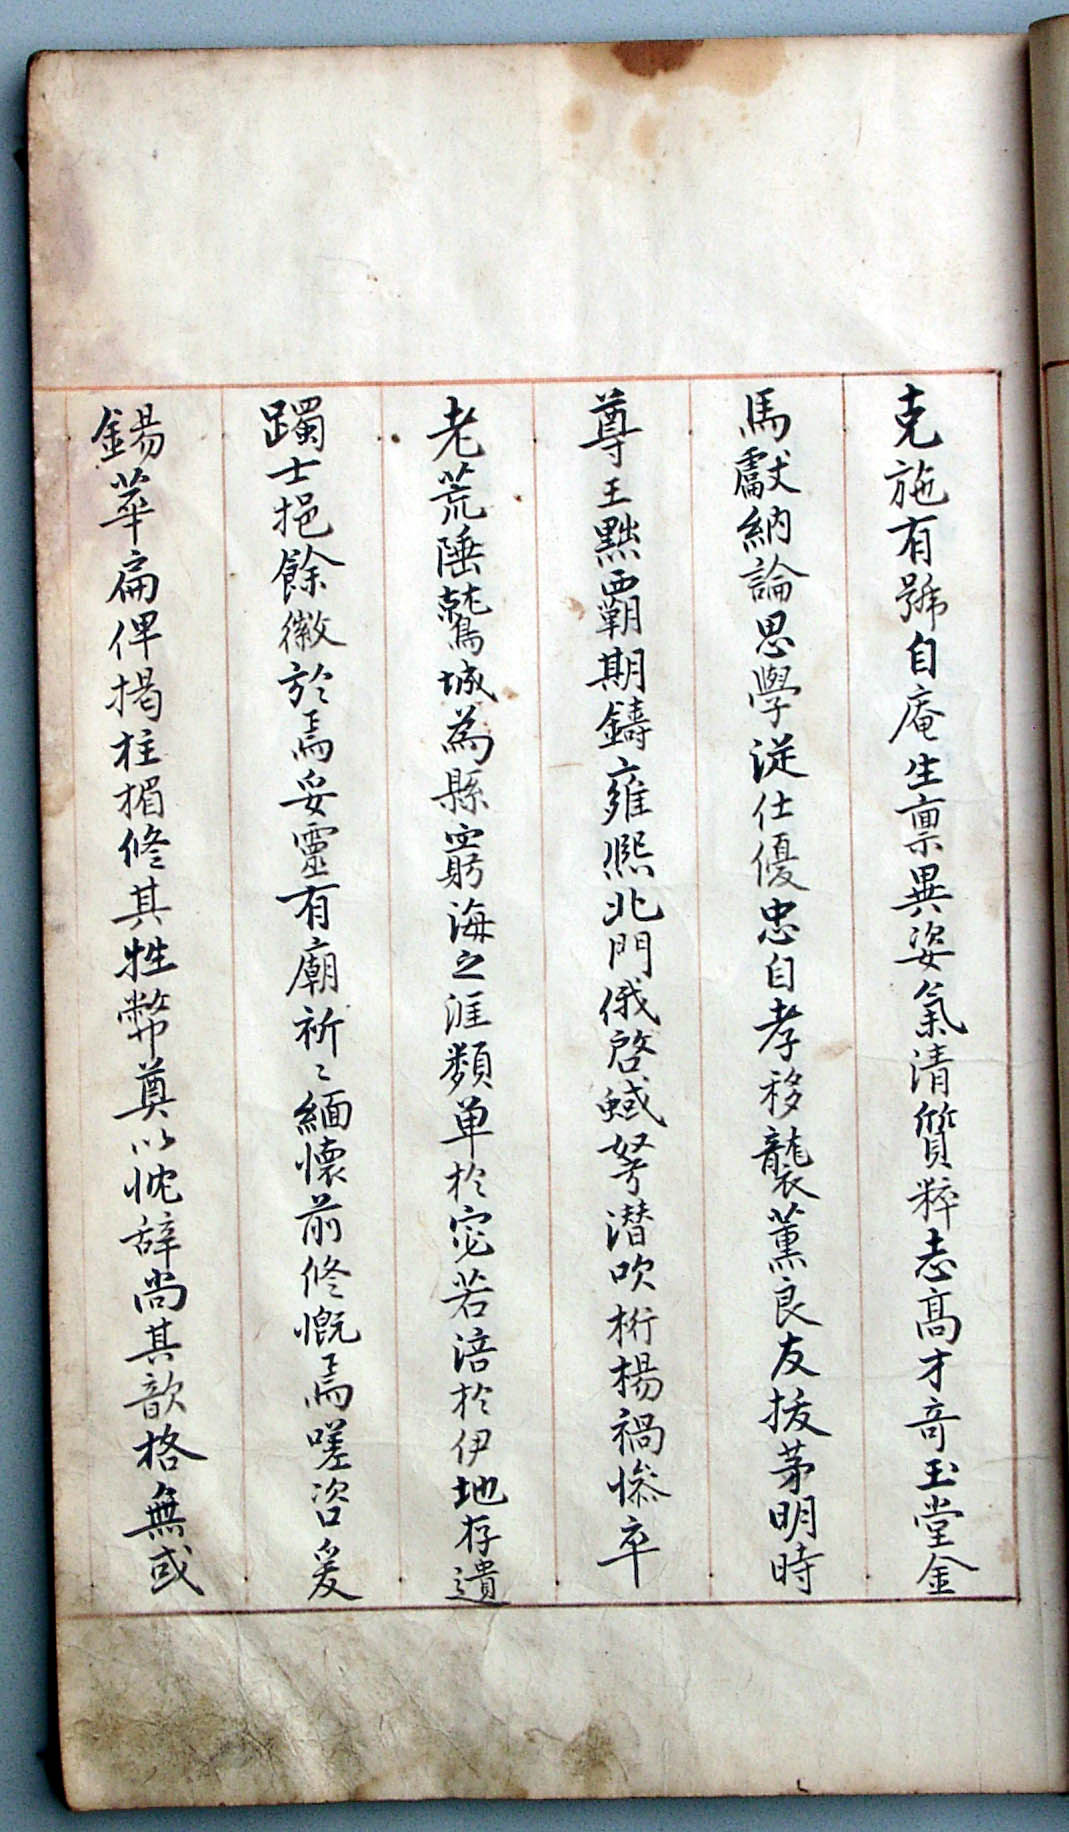 克施有號自庵生禀異姿氣清質粹志高才奇玉堂金
馬獻納論思學從仕優忠自孝移襲薰良友拔茅明時
尊王黜覇期鑄雍熙北門俄啓蜮弩潜吹桁楊禍慘卒
老荒陲鷲城為縣窮海之涯類单於宓若涪於伊地存遺
躅士挹餘徽於焉妥靈有廟祈〻緬懷前修慨焉嗟咨爰
錫華扁俾揭柱楣修其牲幣奠以忱辞尚其歆格無或